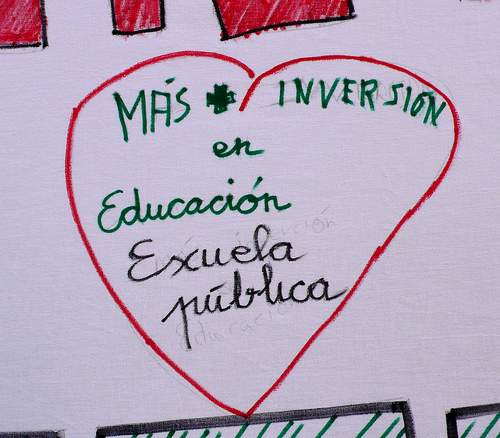 MÁS + INVERSIÓN
en
Educación
Exuela
pública